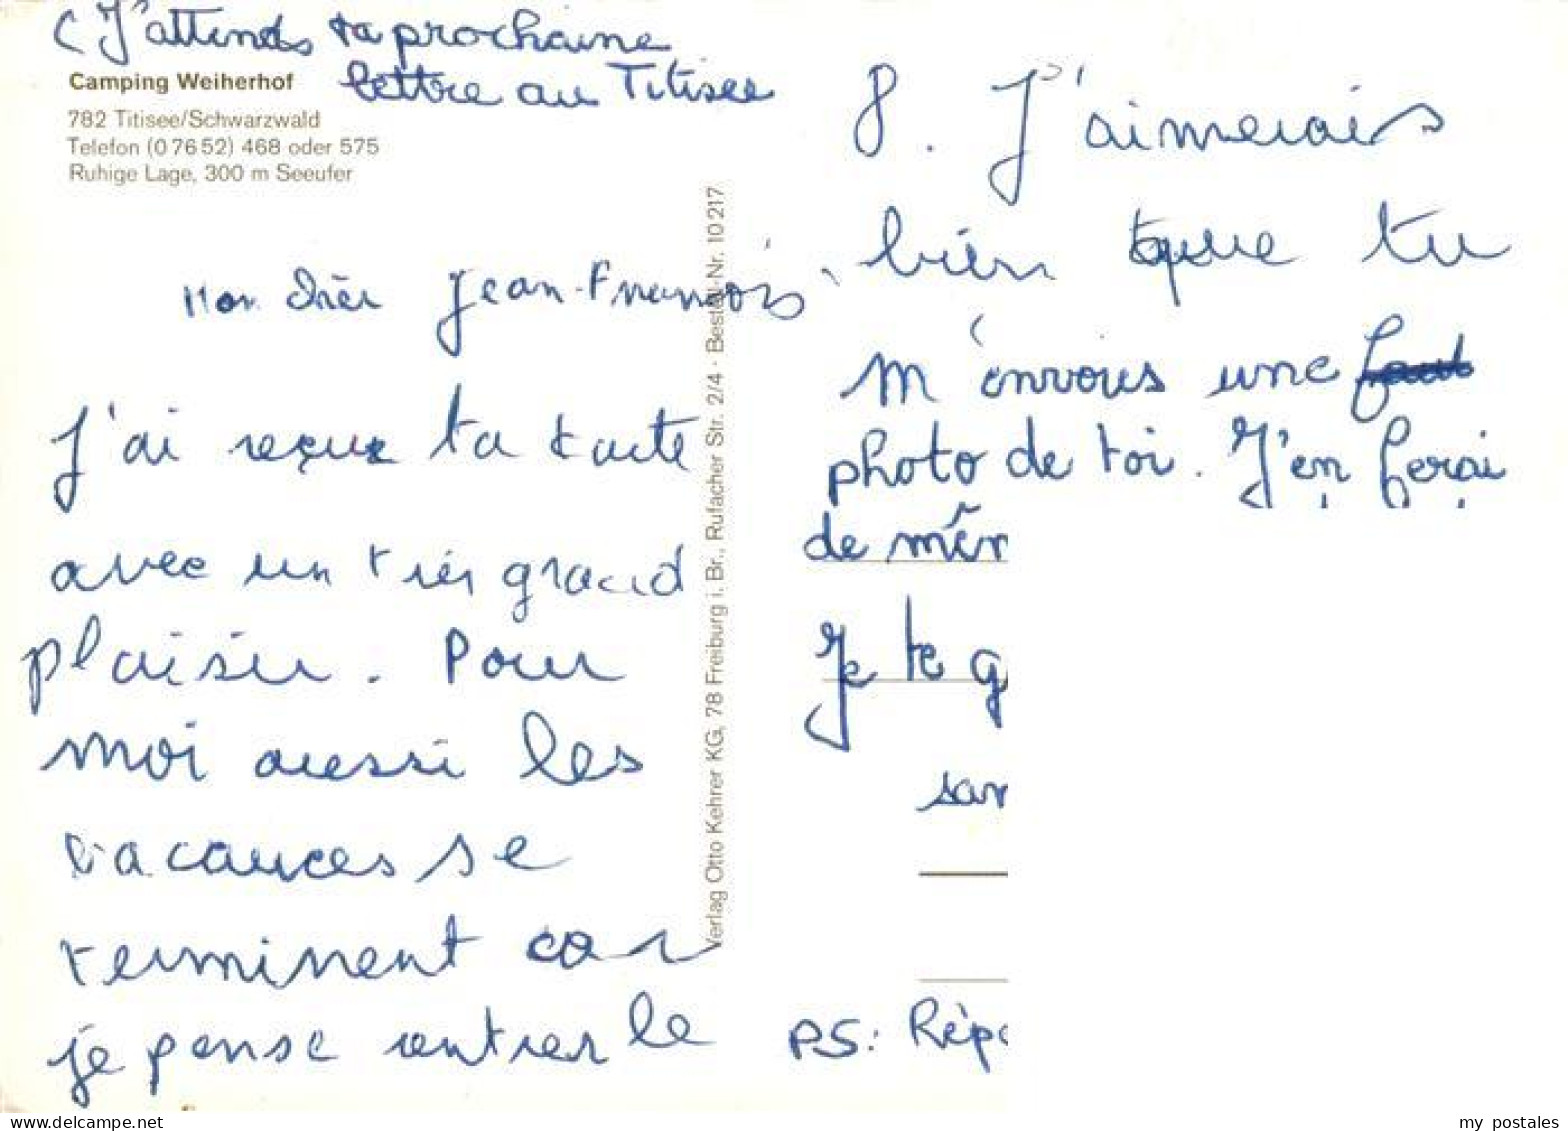 (J'attends ta prochaine
lettre au Titisee
Camping Weiherhof
782 Titisee/Schwarzwald
Telefon (0 76 52) 468 oder 575
Ruhige Lage, 300 m Seeufer
Mon chèr Jean-François,
J'ai reçue ta carte
avec un très grand
plaisir. Pour
moi aussi les
vacances se
terminent car
je pense rentrer le
Verlag Otto Kehrer KG, 78 Freiburg i. Br., Rufacher Str. 2/4 · Bestell-Nr. 10 217
8. J'aimerais
bien que tu
m'envoies une
photo de toi. J'en ferai
de mêm
Je te g
san
PS: Répo
my postales